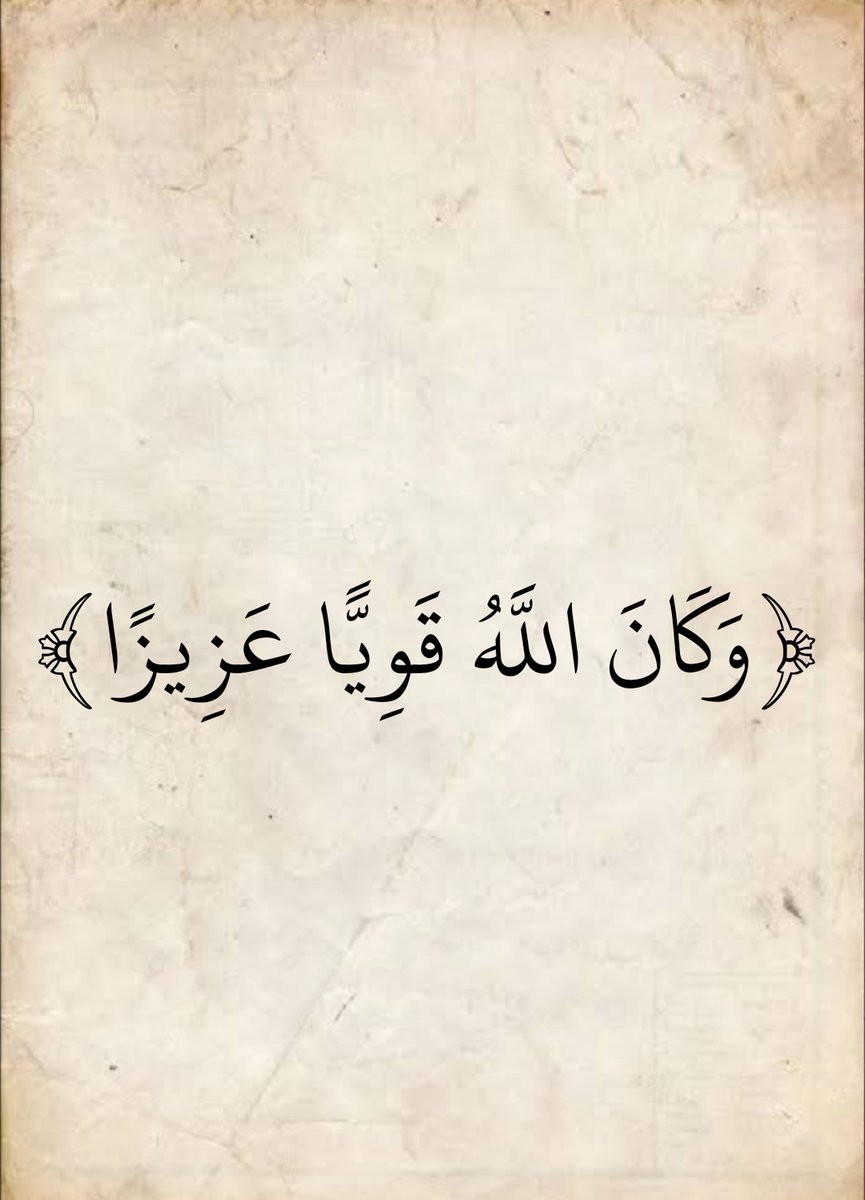 ﴿وَكَانَ اللَّهُ قَوِيًّا عَزِيزًا﴾